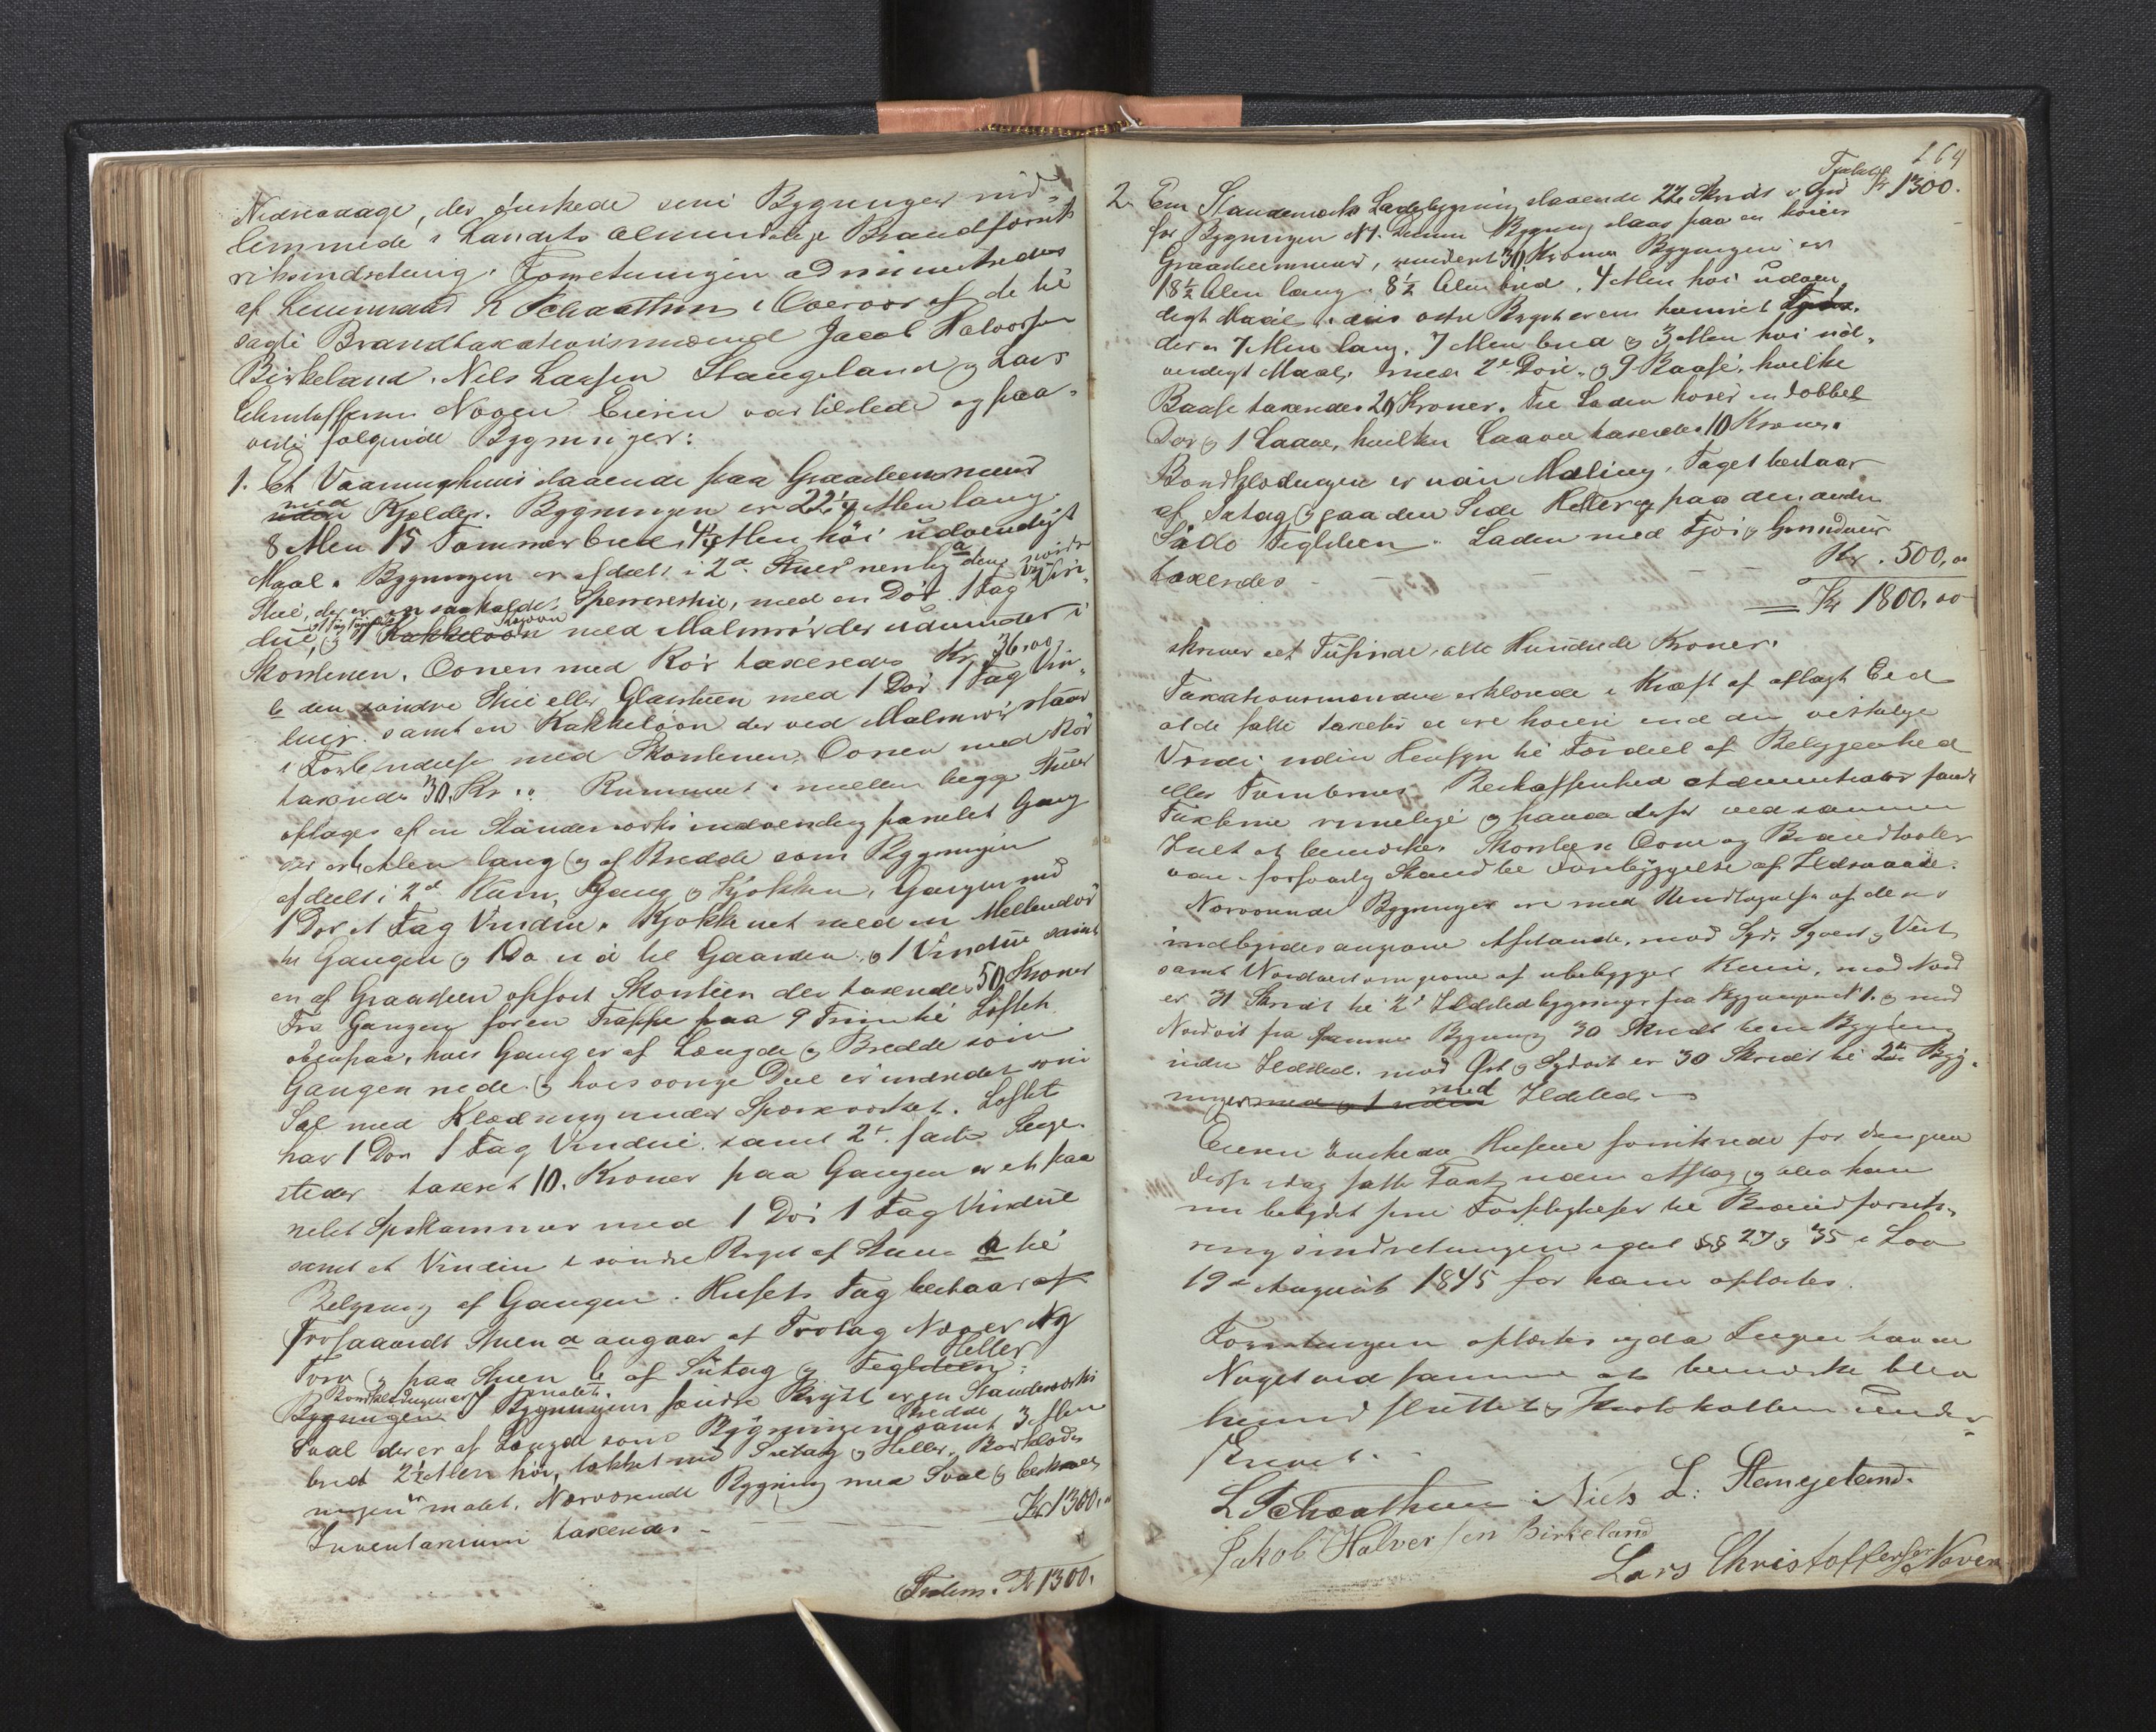 Nedrevaage, der ønskede sine Bygninger ind-
lemmede i Landets almindelige Brandforsik
ringsindretning. Forretningen administredes
af Lensmand L Schaathun i Overvær af de til
sagte Brandtaxationsmænd Jacob Halvorsen
Birkeland, Nils Larsen Stangeland og Lars
Christoffersen Nogen Eieren var tilstede og paa-
viste følgende Bygninger:
1. Et Vaaningshuus staaende paa Graasteensmuur
med
uden Kjelder. Bygningen er 22¼ Alen lang
8 Alen 15 Tommer bred, 4¼ Alen høi udvendigt
Maal. Bygningen er afdeelt i 2de Stuer nemlig a den nordre
Stue, der er en saakaldt Sperrestue, med en Dør 1 Fag Vin-
due, og 1 Kakkelovn med Malmrør der udmunder i
Skorstenen. Ovnen med Rør taxeredes Kr 36,00
b den søndre Stue eller Glasstuen med 1 Dør 1 Fag Vin-
duer samt en Kakkelovn der ved Malmrør staar
i Forbindelse med Skorstenen, Ovnen med Rør
taxeredes 30 Kr. Rummet imellem begge Stuer
optages af en Standerværks indvendig panelet Gang
der er Alen lang og af Bredde som Bygningen
afdeelt i 2de Rum, Gang og Kjøkken, Gangen med
1 Dør et Fag Vindue. Kjøkkenet med en Mellemdør
til Gangen og 1 Dør ud til Gaarden, og 1 Vindue samt
en af Graasteen opført Skorsteen der taxeredes 50 Kroner
Fra Gangen fører en Trappe paa 9 Trin til Loftet
ovenpaa, hvis Gang er af Længde og Bredde som
Gangen nede og hvis øvrige Deel er indredet som
Sal med Klædning under Sperreværket. Loftet
har 1 Dør 1 Fag Vindue samt 2de faste Senge-
steder taxeret 10. Kroner paa Gangen er et pa
nelet Spiskammer med 1 Dør 1 Fag Vindue
samt et Vindue i søndre Røst af Stuen a til
Belysning af Gangen. Husets Tag bestaar af
forsaavidt Stuen a angaar af Trotag Næver og
Heller
Torv og paa Stuen b af Sutag og Teglsteen:
Bordklædningen er malet.
Bygningen I Bygningens søndre Røst er en Standerværks
Sval der er af Længde som Bygningens Bredde samt 3 Alen
bred 2½ Alen høi, tækket med Sutag og Heller. Bordklæd-
ningen er malet. Nærværende Bygning med Sval og beskrevet
Inventarium taxeredes - Kr 1300,00
Tralem. Kr 1300.
264
Tralat Kr 1300.
2. En Standerværks Ladebygning staaende 22 Skridt i Syd
for Bygningen N 1. Denne Bygning staar paa en høiere
Graasteensmuur, vurderet 30 Kroner Bygningen er
18½ Alen lang. 8½ Alen bred. 4 Alen høi udven-
digt Maal. i dens østre Røst er en tømret
der er 7 Alen lang. 7 Alen bred og 3 Alen høi ud-
vendigt Maal, med 2de Døre og 9 Baase, hvilke
Baase taxeredes 20 Kroner. Til Laden hører en dobbel
Dør og 1 Laave, hvilken Laave taxeredes 10 Kroner.
Bordklædningen er uden Maling, Taget bestaar
af Sutag og paa den Side Heller og paa den anden
Side Teglsteen. Laden med Fjøs og Grundmuur
taxeredes - - - Kr. 500,00
Kr 1800,00
skriver eet Tusinde, otte Hundrede Kroner.
Taxationsmændene erklærede i Kraft af aflagt Eed
at de satte Taxter ei ere høiere end den virkelige
Værdi uden Hensyn til Fordeel af Beliggenhed
eller Tomternes Beskaffenhed Administrator fandt
Taxterne rimelige og havde derfor ved samme
Intet at bemærke. Skorsteen Ovne og Brandhooler
var i forsvarlig Stand til Forebyggelse af Ildsvaade.
Nærværende Bygninger ere med Undtagelse af de
indbyrdes angivne Afstande, mod Syd, Sydvest og Vest
samt Nordvest omgivne af ubebygget Rum, mod Nord
er 31 Skridt til 2de Ildstedbygninger fra Bygningen N 1. og mod
Nordost fra samme Bygning 30 Skridt til en Bygning
uden Ildsted. mod Øst og Sydost er 30 Skridt til 2de Byg-
med
ninger med og 1 uden Ildsted.
Eieren ønskede Husene forsikrede for den paa
disse idag satte Taxt, uden Afslag og blev ham
nu betydet sine Forpligtelser til Brandforsik-
ringsindretningen igjennem §§ 27 og 35 i Lov
19de August 1845 for ham oplæstes.
Forretningen oplæstes og da Ingen havde
Noget ved samme at bemærke blev
hermed sluttet og Protokollen under-
skrevet.
L Schaathun Niels L: Stangeland.
Jakob Halversen Birkeland
Lars Christoffersen Noven